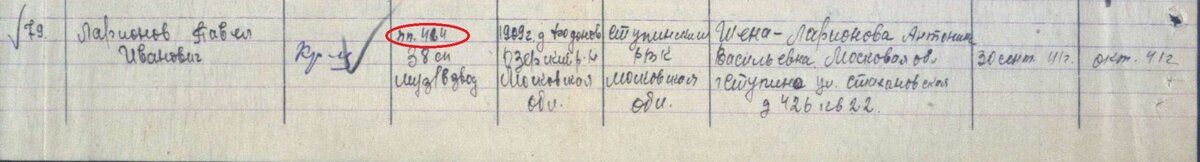 79. Ларионов Павел
Иванович
Кр-ц
пп. 484
38 сп
муз/взвод
1909г. д
Озерский р-н
Московская
обл.
Ступинский
РВК
Московская
обл.
Жена - Ларионова Антонина
Васильевна Московская обл.
г Ступино ул. Стахановская
д 426 кв 22.
30 сент. 41г.
окт. 41г